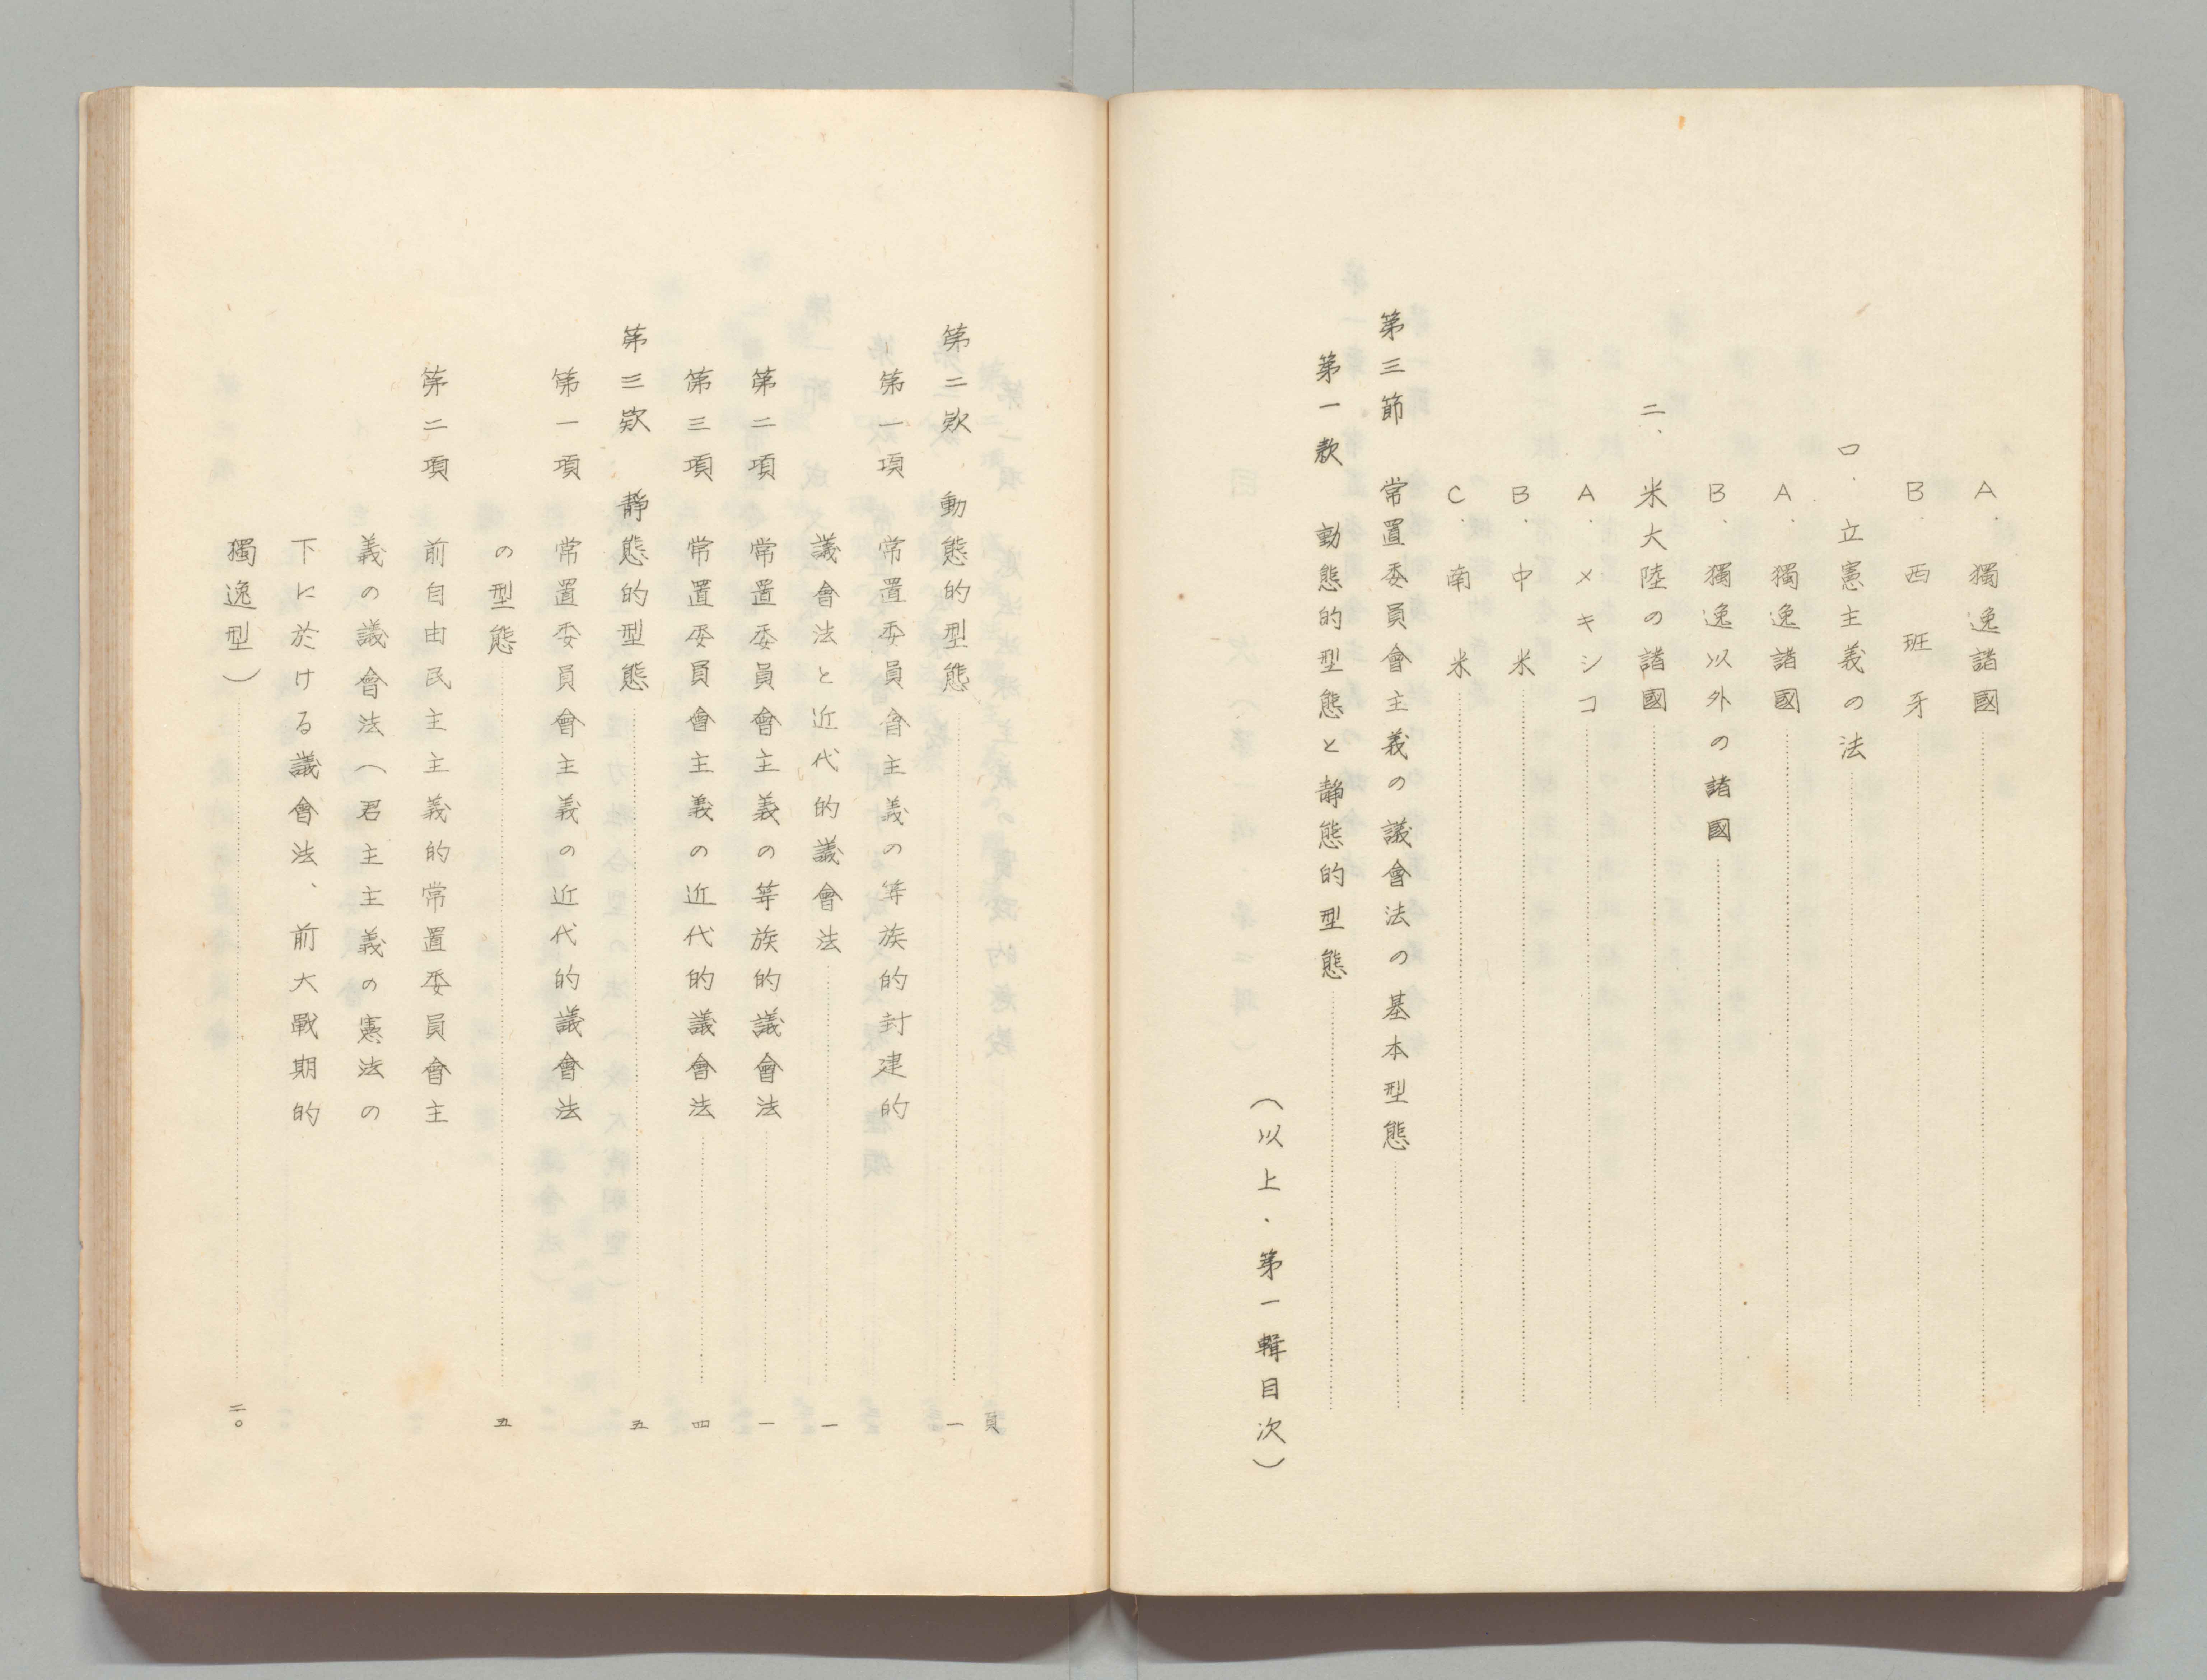 A．獨逸諸國
B．西班牙
ロ．立憲主義の法
A．獨逸諸國
B．獨逸以外の諸國
二、米大陸の諸國
A．メキシコ
B．中米
C．南米
第三節　常置委員會主義の議會法の基本型態
第一款　動態的型態と靜態的型態
（以上、第一輯目次）
頁
第二款　動態的型態　一
第一項　常置委員會主義の等族的封建的
議會法と近代的議會法　一
第二項　常置委員會主義の等族的議會法　一
第三項　常置委員會主義の近代的議會法　四
第三款　靜態的型態　五
第一項　常置委員會主義の近代的議會法
の型態　五
第二項　前自由民主主義的常置委員會主
義の議會法（君主主義の憲法の
下に於ける議會法、前大戰期的
獨逸型）　二〇